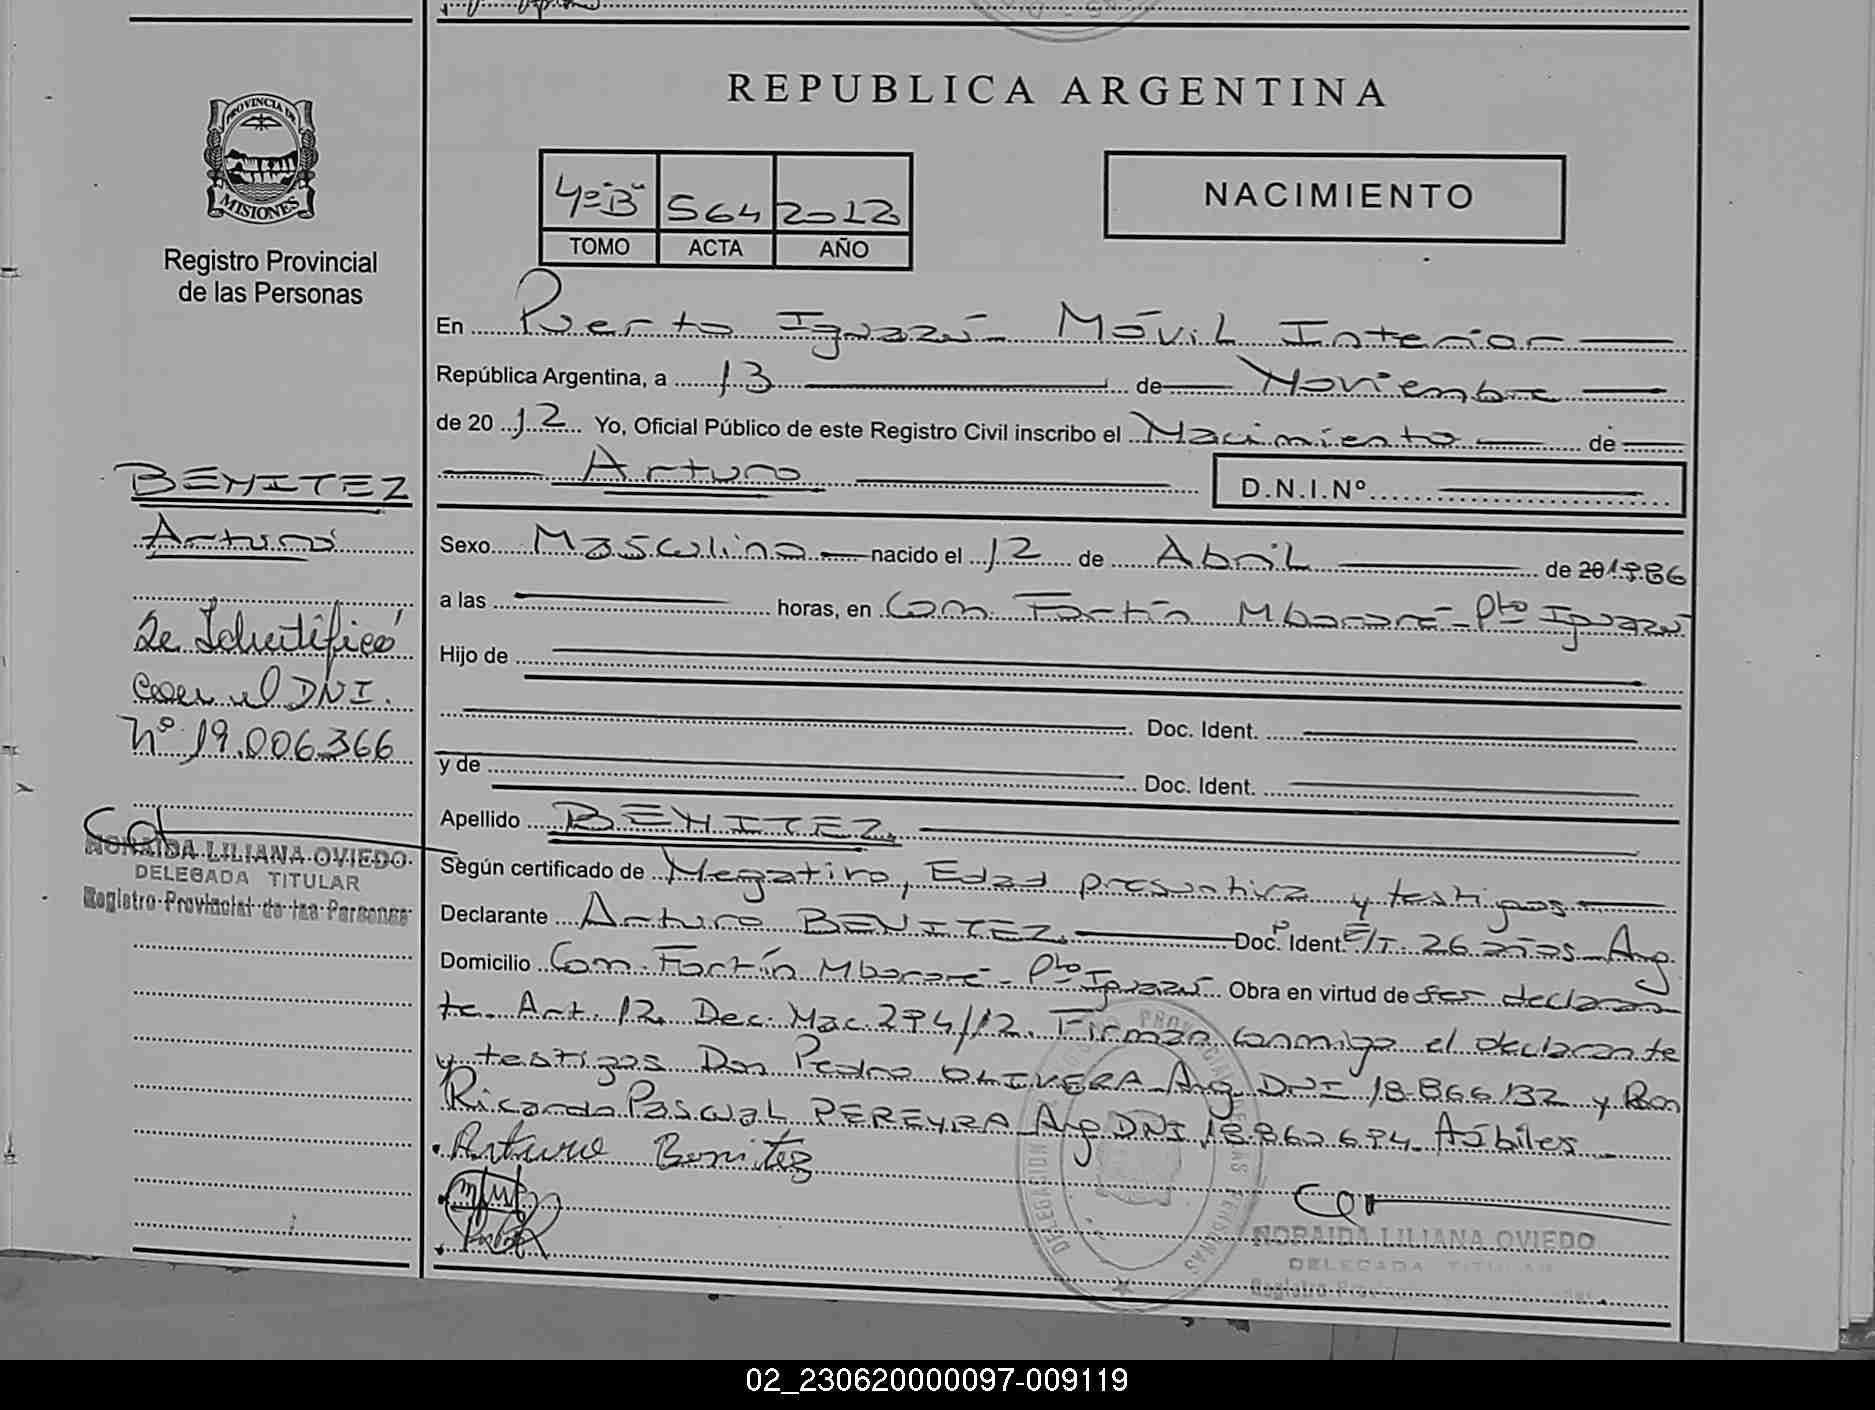 PROVINCIA DE
MISIONES
Registro Provincial
de las Personas
BENITEZ
Arturo
Se Identificó
con el DNI.
Nº 19.006.366
NORAIDA LILIANA OVIEDO
DELEGADA TITULAR
Registro Provincial de las Personas
REPUBLICA ARGENTINA
4º"B" 564 2012
TOMO ACTA AÑO
NACIMIENTO
En Puerto Iguazú - Móvil Interior
República Argentina, a 13 de Noviembre
de 20 12 Yo, Oficial Público de este Registro Civil inscribo el Nacimiento de
Arturo D.N.I.Nº
Sexo Masculino nacido el 12 de Abril de 201986
a las horas, en Com. Fortín Mbororé - Pto Iguazú
Hijo de
Doc. Ident.
y de Doc. Ident.
Apellido BENITEZ
Según certificado de Negativo, Edad presuntiva y testigos
Declarante Arturo BENITEZ Doc. Ident. E/T. 26 años Arg.
Domicilio Com. Fortín Mbororé - Pto Iguazú Obra en virtud de ser declaran
te. Art. 12. Dec. Nac. 294/12. Firman conmigo el declarante
y testigos Don Pedro OLIVERA Arg. DNI 18.866.132 y Don
Ricardo Pascual PEREYRA Arg DNI 18.862.694. Hábiles
Arturo Benitez
NORAIDA LILIANA OVIEDO
DELEGADA TITULAR
02_230620000097-009119